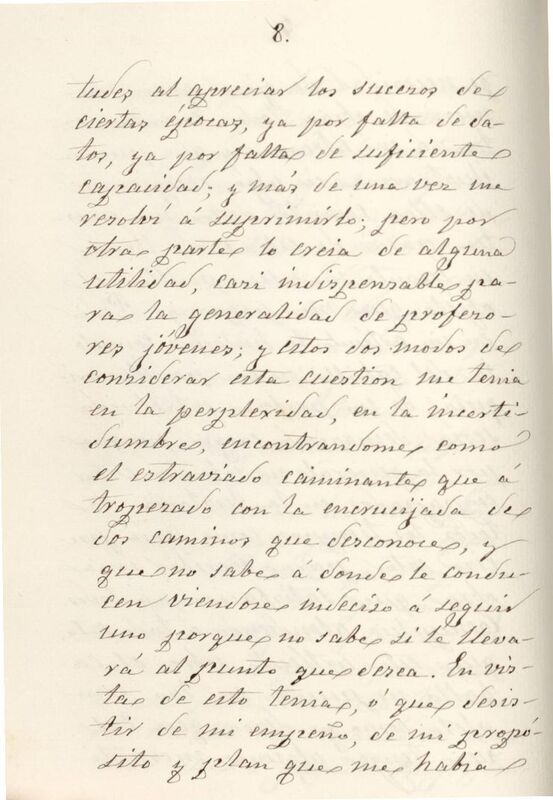 8.
tudes al apreciar los sucesos de
ciertas épocas, ya por falta de da-
tos, ya por falta de suficiente
capacidad; y más de una vez me
resolví á suprimirlo; pero por
otra parte lo creia de alguna
utilidad, casi indispensable pa-
ra la generalidad de profeso-
res jóvenes; y estos dos modos de
considerar esta cuestion me tenia
en la perplexidad, en la incerti-
dumbre, encontrandome como
el estraviado caminante que á
tropezado con la encrucijada de
dos caminos que desconoce, y
que no sabe á donde le condu-
cen viendose indeciso á seguir
uno porque no sabe si le lleva-
rá al punto que desea. En vis-
ta de esto tenia, ó que desis-
tir de mi empeño, de mi propó-
sito y plan que me habia